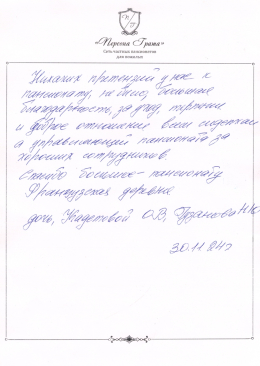 «Персона Грата»
Сеть частных пансионатов
для пожилых
Никаких претензий у нас к
пансионату, не было большая
благодарность, за уход, терпение
и доброе отношение всем сиделкам
а управляющей пансионата за
хороших сотрудников.
Спасибо большое - пансионату
Французская деревня
дочь, Кадетовой О.В,
30.11.24г